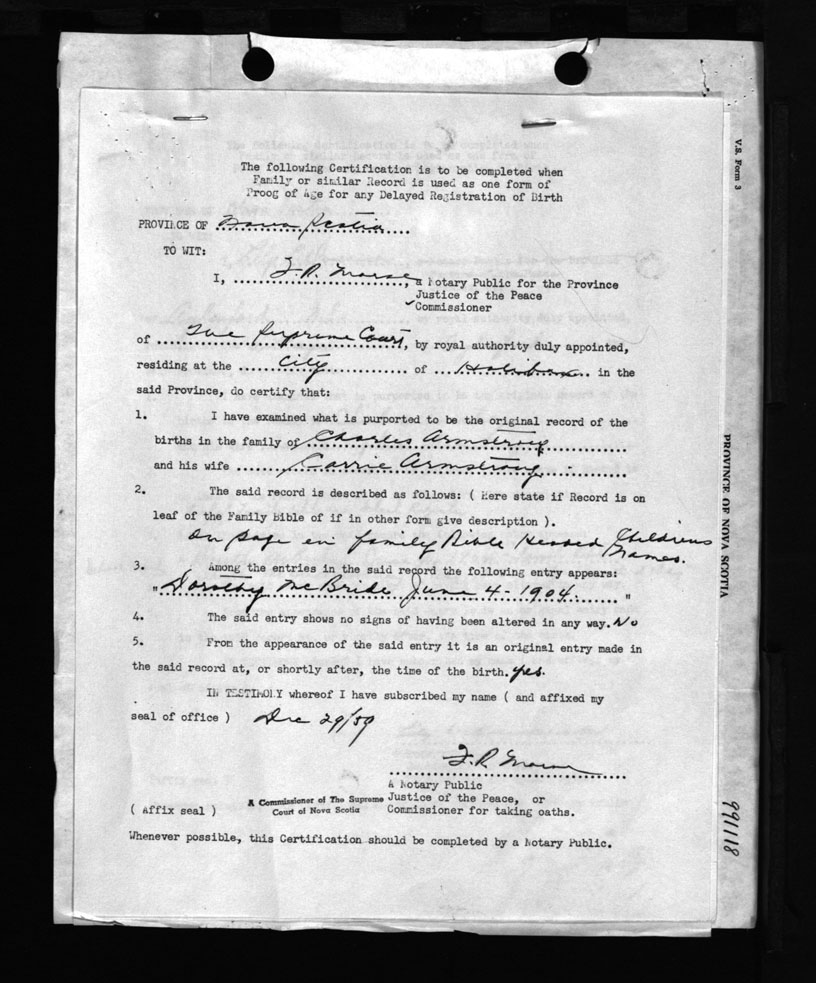 The following Certification is to be completed when
Family or similar Record is used as one form of
Proog of Age for any Delayed Registration of Birth
V.S. Form 3
PROVINCE OF Nova Scotia
TO WIT:
I, F. R. Morse, a Notary Public for the Province
Justice of the Peace
✓Commissioner
of The Supreme Court, by royal authority duly appointed,
residing at the City of Halifax in the
said Province, do certify that:
1. I have examined what is purported to be the original record of the
births in the family of Charles Armstrong
and his wife Carrie Armstrong
2. The said record is described as follows: ( Here state if Record is on
leaf of the Family Bible of if in other form give description ).
On page in family Bible Headed Childrens
Names.
PROVINCE OF NOVA SCOTIA
3. Among the entries in the said record the following entry appears:
" Dorothy McBride June 4 - 1904. "
4. The said entry shows no signs of having been altered in any way. No
5. From the appearance of the said entry it is an original entry made in
the said record at, or shortly after, the time of the birth. yes.
IN TESTIMOLY whereof I have subscribed my name ( and affixed my
seal of office ) Dec 29/59
F. R. Morse
A Notary Public
Justice of the Peace, or
Commissioner for taking oaths.
A Commissioner of The Supreme
Court of Nova Scotia
( Affix seal )
Whenever possible, this Certification should be completed by a Notary Public.
991118